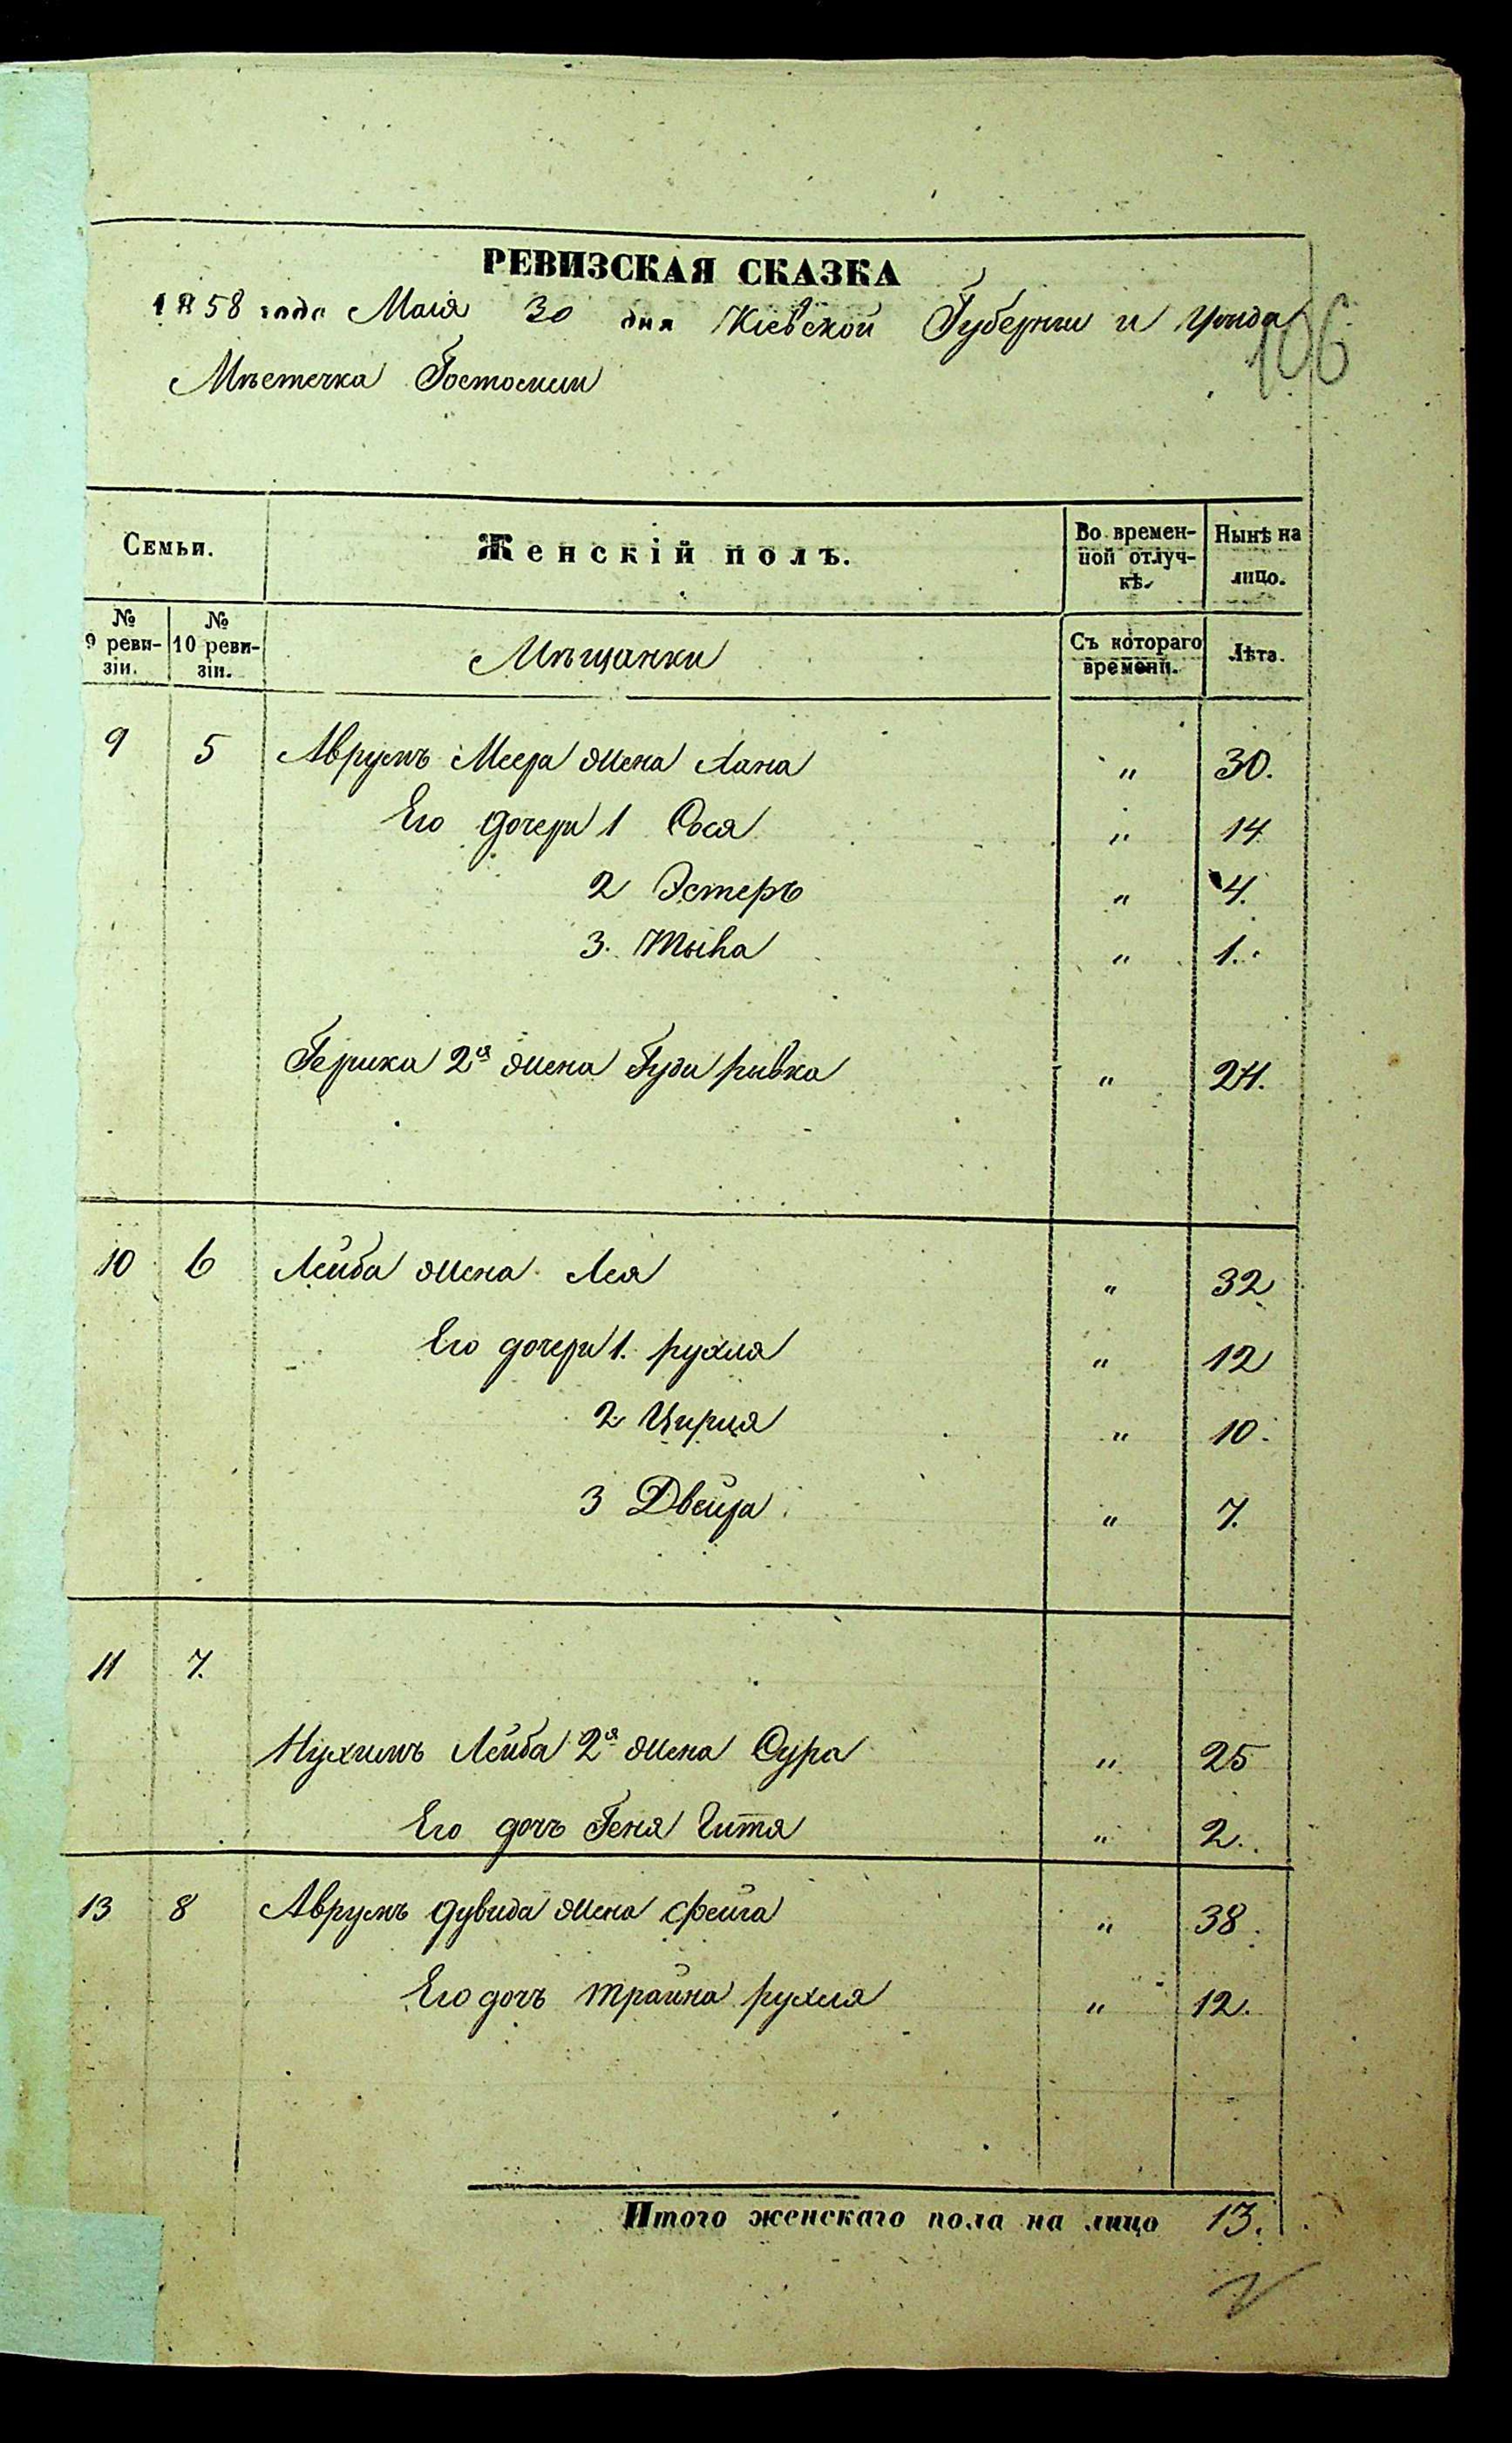 РЕВИЗСКАЯ СКАЗКА
1858 года Маія 30 дня Кіевской Губерніи и уѣзда
106
Мѣстечка Гостомли
Семьи. Женскій полъ. Во временной отлучкѣ. Нынѣ на лицо.
№ 9 ревизіи. № 10 ревизіи. Мѣщанки Съ котораго времени. Лѣта.
9 5 Аврумъ Меера жена Хана " 30.
Его дочери 1 Сося " 14
2 Эстеръ " 4.
3. " 1.
Гершка 2я жена Рывка " 24.
10 6 Лейба жена Лея " 32
Его дочери 1. рухля " 12
2 Цирля " 10.
3 Двейра " 7.
11 7.
Нухимъ Лейба 2я жена Сура " 25
Его дочь Геня Гитя " 2.
13 8 Аврумъ дувида жена Фейга " 38.
Его дочь трайна рухля " 12.
Итого женскаго пола на лицо 13.